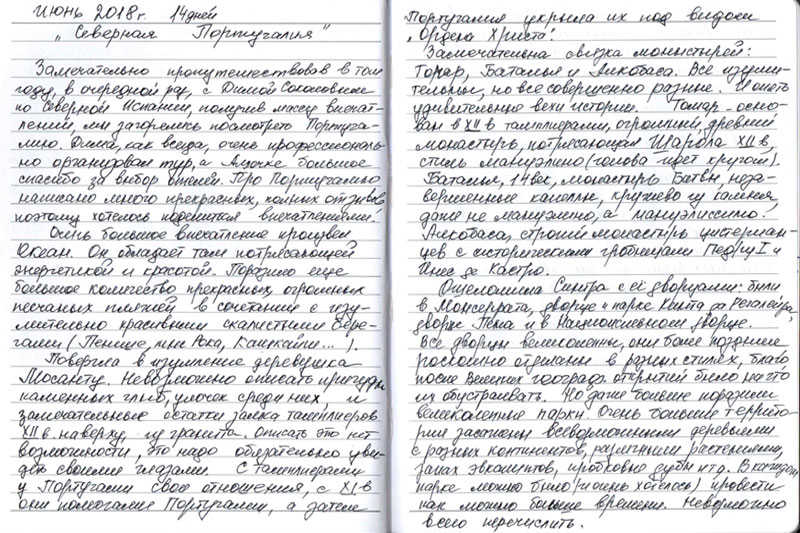 Июнь 2018г. 14 дней
„Северная Португалия"
Замечательно пропутешествовав в том
году, в очередной раз, с Димой Соколовским
по Северной Испании, получив массу впечат-
лений, мы загорелись посмотреть Португа-
лию. Дима, как всегда, очень профессиональ-
но организовал тур, а Алочке большое
спасибо за выбор отелей. Про Португалию
написано много прекрасных, полных отзывов
поэтому хотелось поделиться впечатлениями!
Очень большое впечатление произвел
Океан. Он обладает там потрясающей
энергетикой и красотой. Поразило еще
большое количество прекрасных огромных
песчаных пляжей в сочетании с изу-
мительно красивыми скалистыми бере-
гами (Пенише, мыс Рока, Кашкайш...).
Повергла в изумление деревушка
Мосанту. Невозможно описать причуды
каменных глыб, улочек среди них, и
замечательные остатки замка тамплиеров
XII в. наверху, из гранита. Описать это нет
возможности, это надо обязательно уви-
деть своими глазами. С тамплиерами
у Португалии свои отношения, с XI в
они помогали Португалии, а затем
Португалия укрыла их под видом
„Ордена Христа".
Замечательна связка монастырей:
Томар, Баталья и Алкобаса. Все изуми-
тельны, но все совершенно разные. И опять
удивительные вехи истории. Томар - осно-
ван в XII в тамплиерами, огромный, древний
монастырь, потрясающая Шарола XII в,
стиль мануэлино (голова идет кругом).
Баталья, 14 век, монастырь Битвы, неза-
вершенные капеллы, кружево из камня,
даже не мануэлино, а мануэлиссимо!
Алкобаса, строгий монастырь цистериан-
цев с историческими гробницами Педру I и
Инес де Кастро.
Ошеломила Синтра с её дворцами: были
в Монсеррата, дворце и парке Кинта да Регалейра,
дворце Пена и в Национальном дворце.
Все дворцы великолепные, они были позднее
роскошно отделаны в разных стилях, благо
после Великих географ. открытий было на что
их обустраивать. Но даже больше поразили
великолепные парки. Очень большие террито-
рии засажены всевозможными деревьями
с разных континентов, различными растениями,
запах эвкалиптов, пробковые дубы и т.д. В каждом
парке можно было (и очень хотелось) провести
как можно больше времени. Невозможно
всего перечислить.